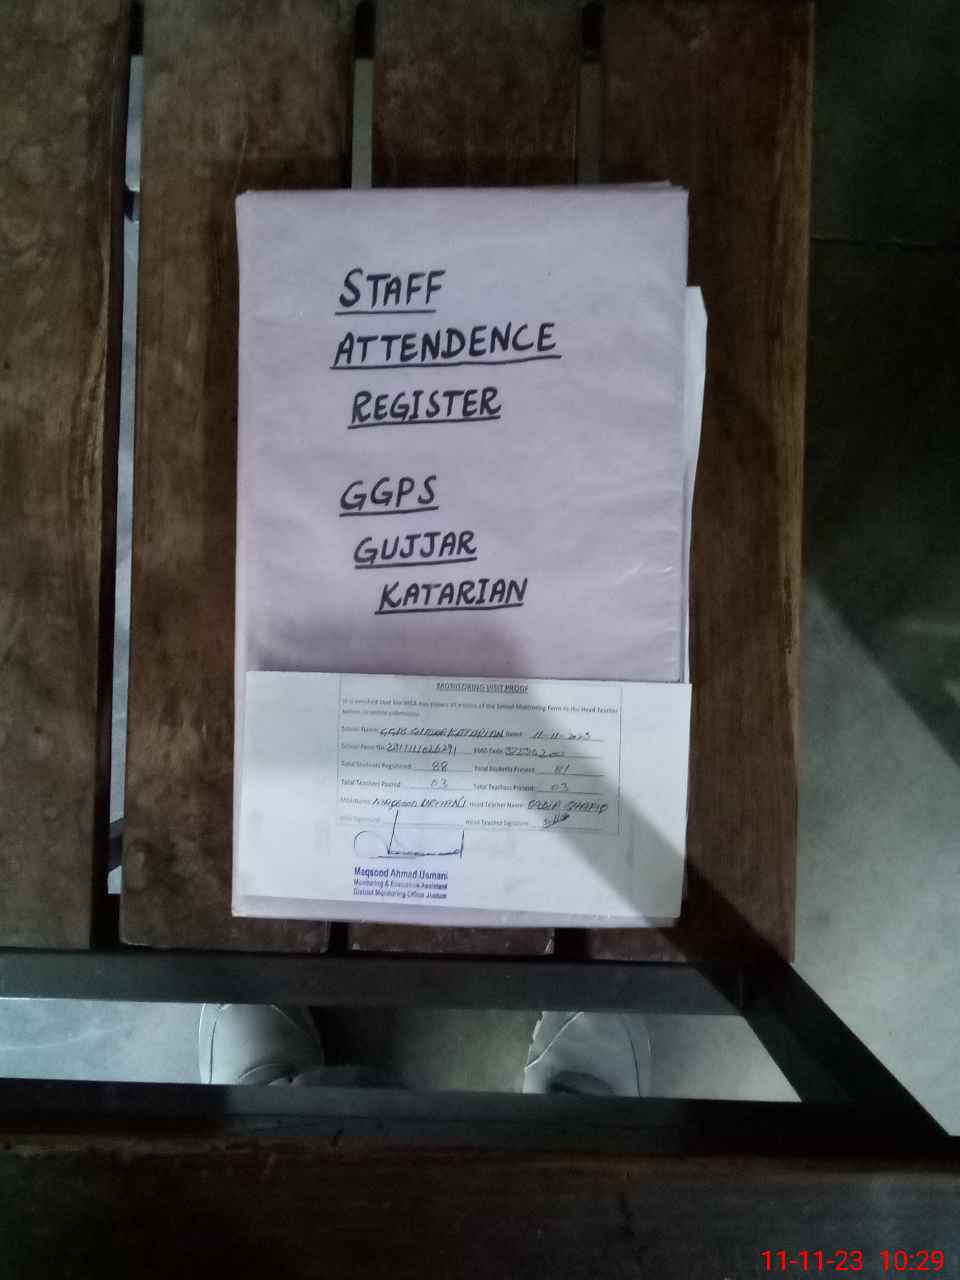 STAFF
ATTENDENCE
REGISTER
GGPS
GUJJAR
KATARIAN
MONITORING VISIT PROOF
It is certified that the MEA has shown all entries of the School Monitoring Form to the Head Teacher
before its online submission.
School Name: GGPS GUJJAR KATARIAN Dated: 11-11-2023
School Form No EMIS Code:
Total Students Registered: 88 Total Students Present: 81
Total Teachers Posted: 03 Total Teachers Present: 03
MEA Name: MAQSOOD USMANI Head Teacher Name:
MEA Signature: Head Teacher Signature:
Maqsood Ahmad Usmani
Monitoring & Evaluation Assistant
District Monitoring Office
11-11-23 10:29